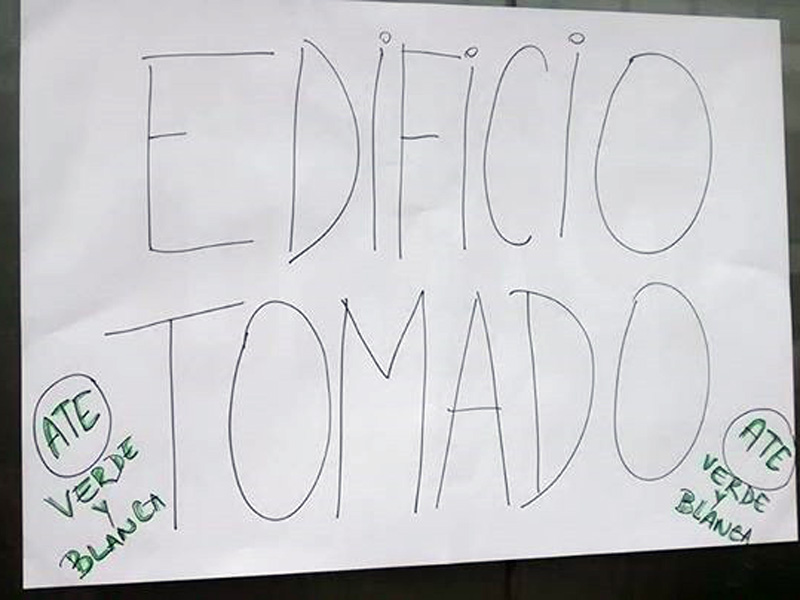 EDiFiCiO
TOMADO
ATE
VERDE
Y
BLANCA
ATE
VERDE
Y
BLANCA